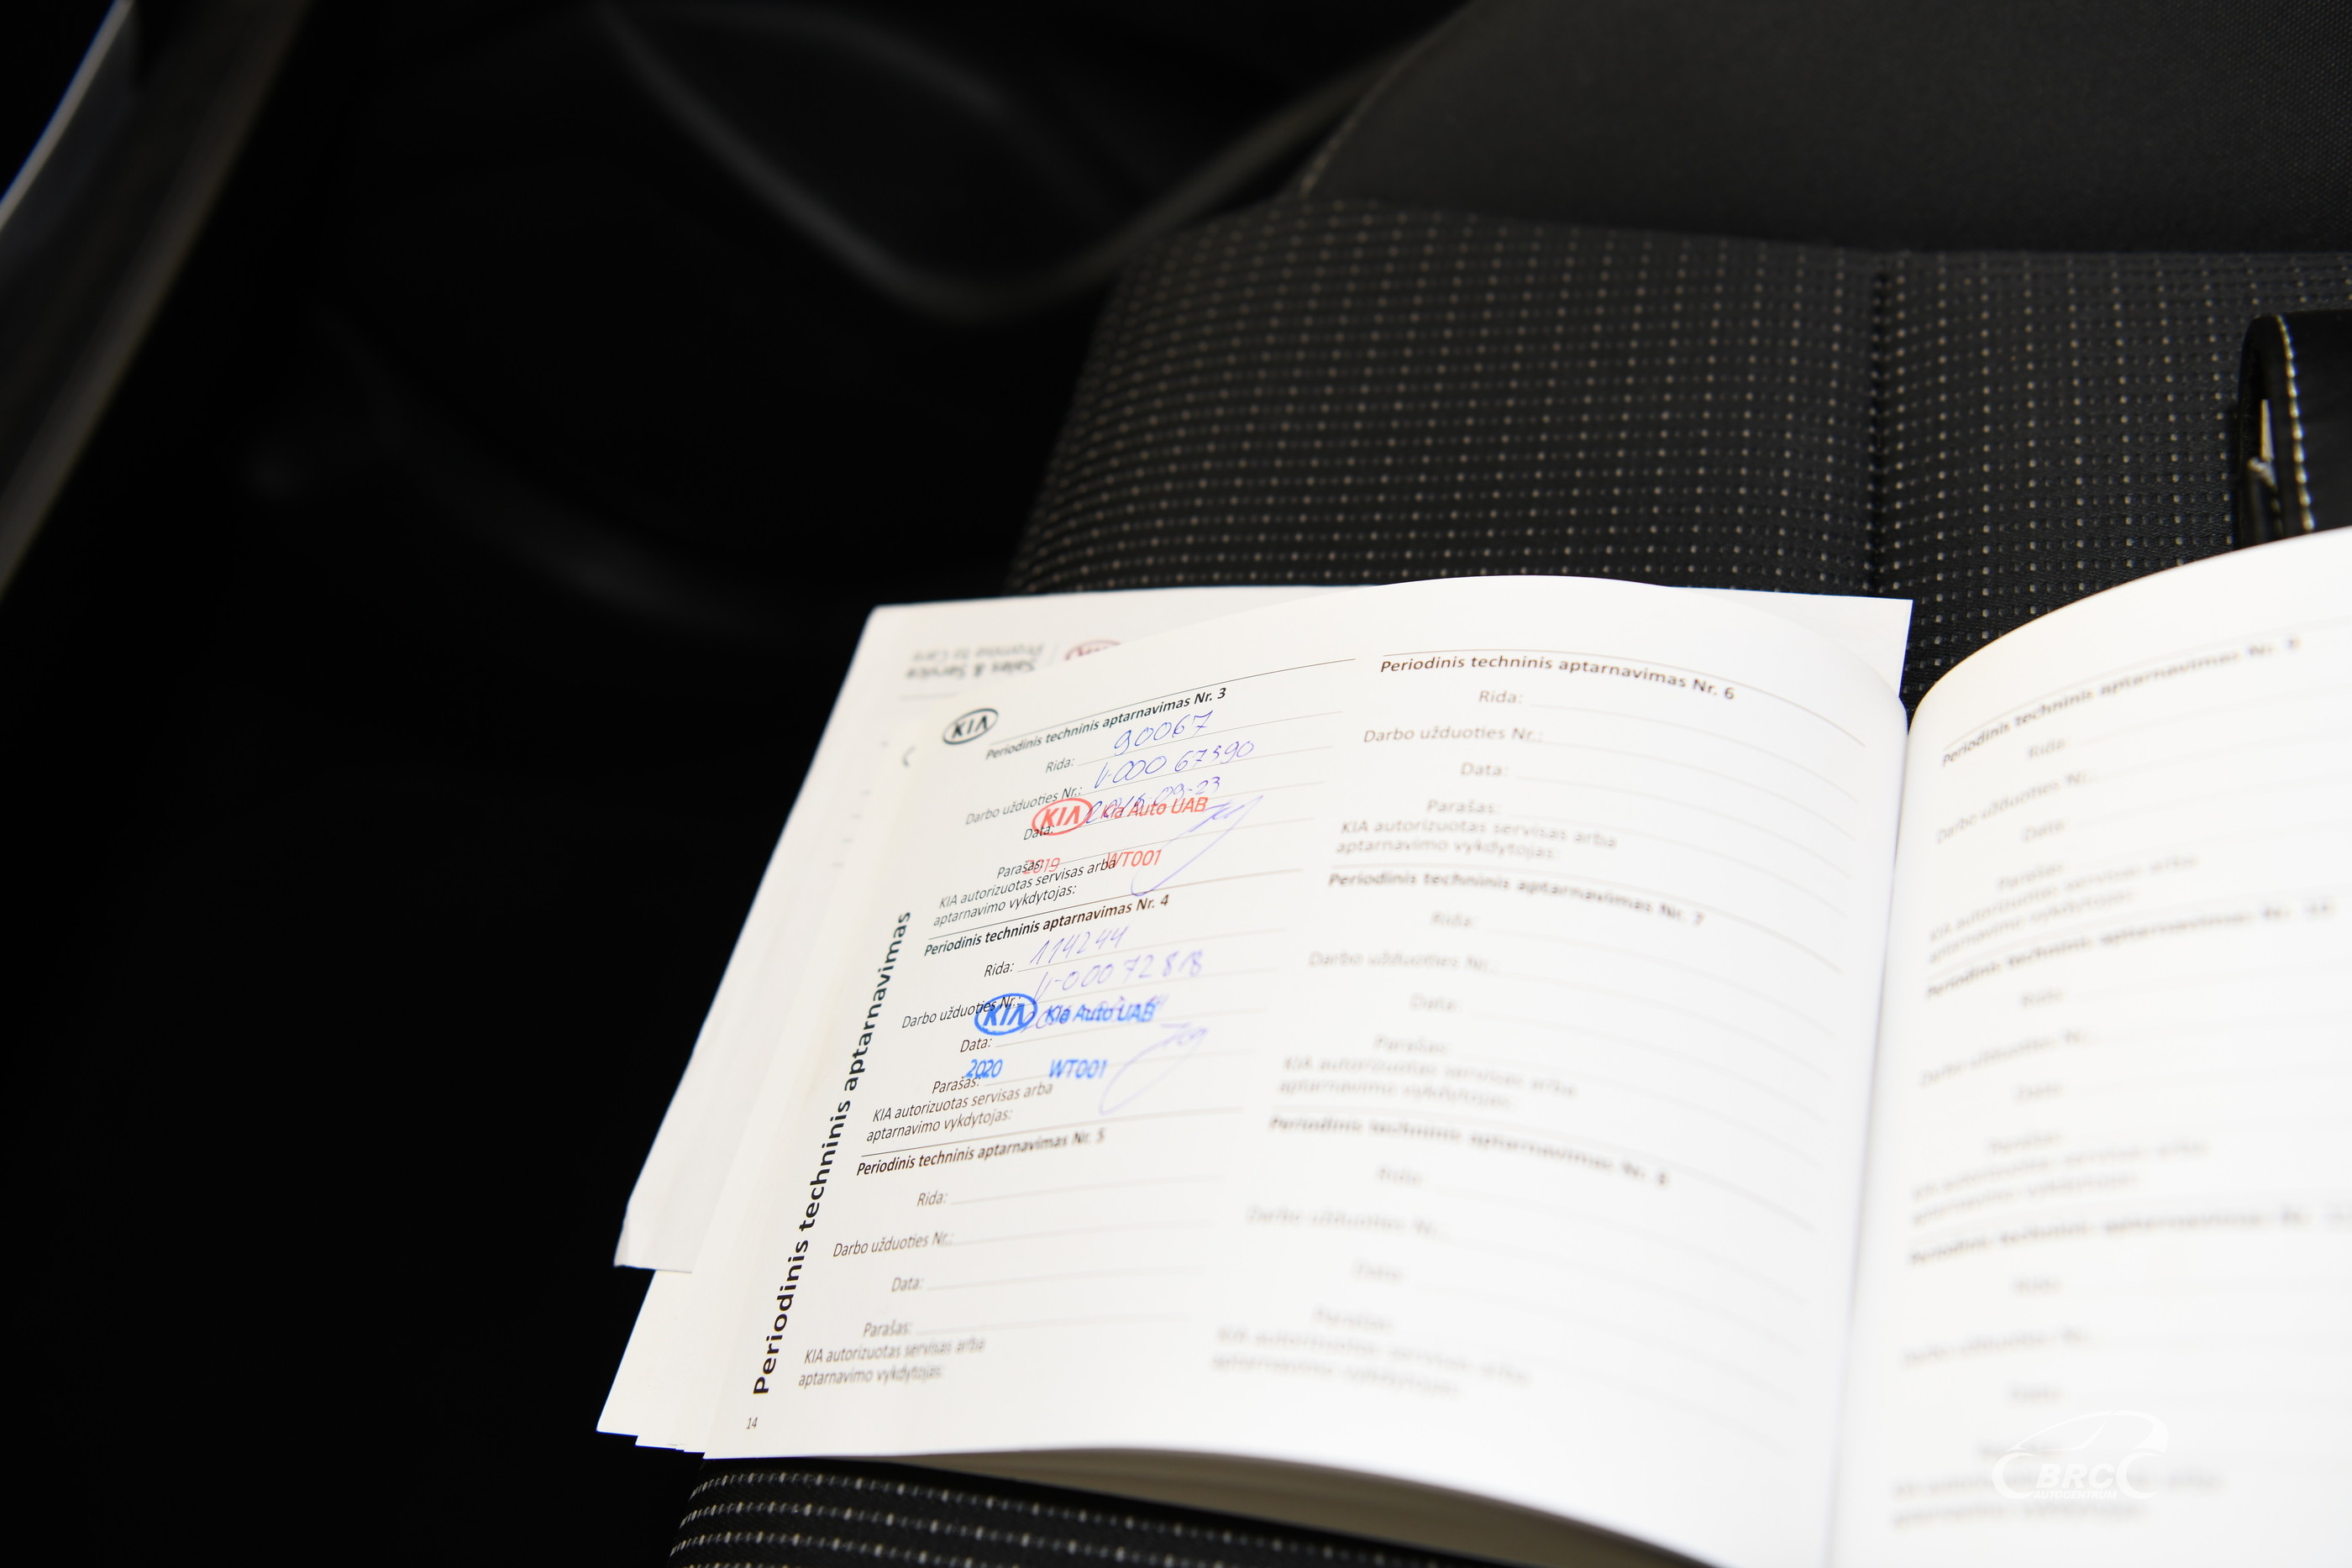 Sales & Service
Promise to Care
KIA
Periodinis techninis aptarnavimas Nr. 3
Rida: 90067
Darbo užduoties Nr.: V-000 67390
Data:
KIA Kia Auto UAB
Parašas:
2019 WT001
KIA autorizuotas servisas arba
aptarnavimo vykdytojas:
Periodinis techninis aptarnavimas Nr. 4
Rida: 114244
Darbo užduoties Nr.: V-000 72818
KIA Kia Auto UAB
Data:
2020 WT001
Parašas:
KIA autorizuotas servisas arba
aptarnavimo vykdytojas:
Periodinis techninis aptarnavimas Nr. 5
Rida:
Darbo užduoties Nr.:
Data:
Parašas:
KIA autorizuotas servisas arba
aptarnavimo vykdytojas:
Periodinis techninis aptarnavimas
14
Periodinis techninis aptarnavimas Nr. 6
Rida:
Darbo užduoties Nr.:
Data:
Parašas:
KIA autorizuotas servisas arba
aptarnavimo vykdytojas:
Periodinis techninis aptarnavimas Nr. 7
Rida:
Darbo užduoties Nr.:
Data:
Parašas:
KIA autorizuotas servisas arba
aptarnavimo vykdytojas:
Periodinis techninis aptarnavimas Nr. 8
Rida:
Darbo užduoties Nr.:
Data:
Parašas:
KIA autorizuotas servisas arba
aptarnavimo vykdytojas:
Periodinis techninis aptarnavimas Nr.
Rida:
Darbo užduoties Nr.:
Data:
Parašas:
KIA autorizuotas servisas arba
aptarnavimo vykdytojas:
Periodinis techninis aptarnavimas Nr.
Rida:
Darbo užduoties Nr.:
Data:
BRC
AUTOCENTRUM